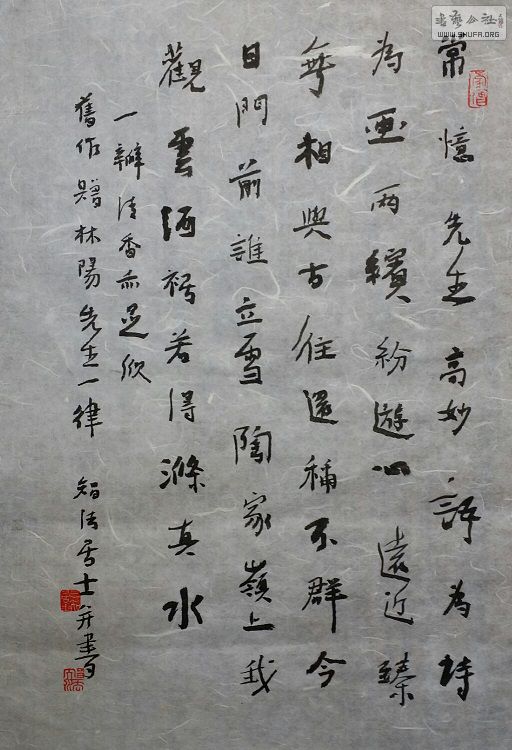 書藝公社
WWW.SHUFA.ORG
常憶先生高妙為詩
為画兩繽紛遊心遠近臻
無相與古往還稱不群今
日門前誰立雪陶家嶺上我
觀雲若得滌真水
一瓣清香亦足欣
舊作贈林陽先生一律 智法居士并書